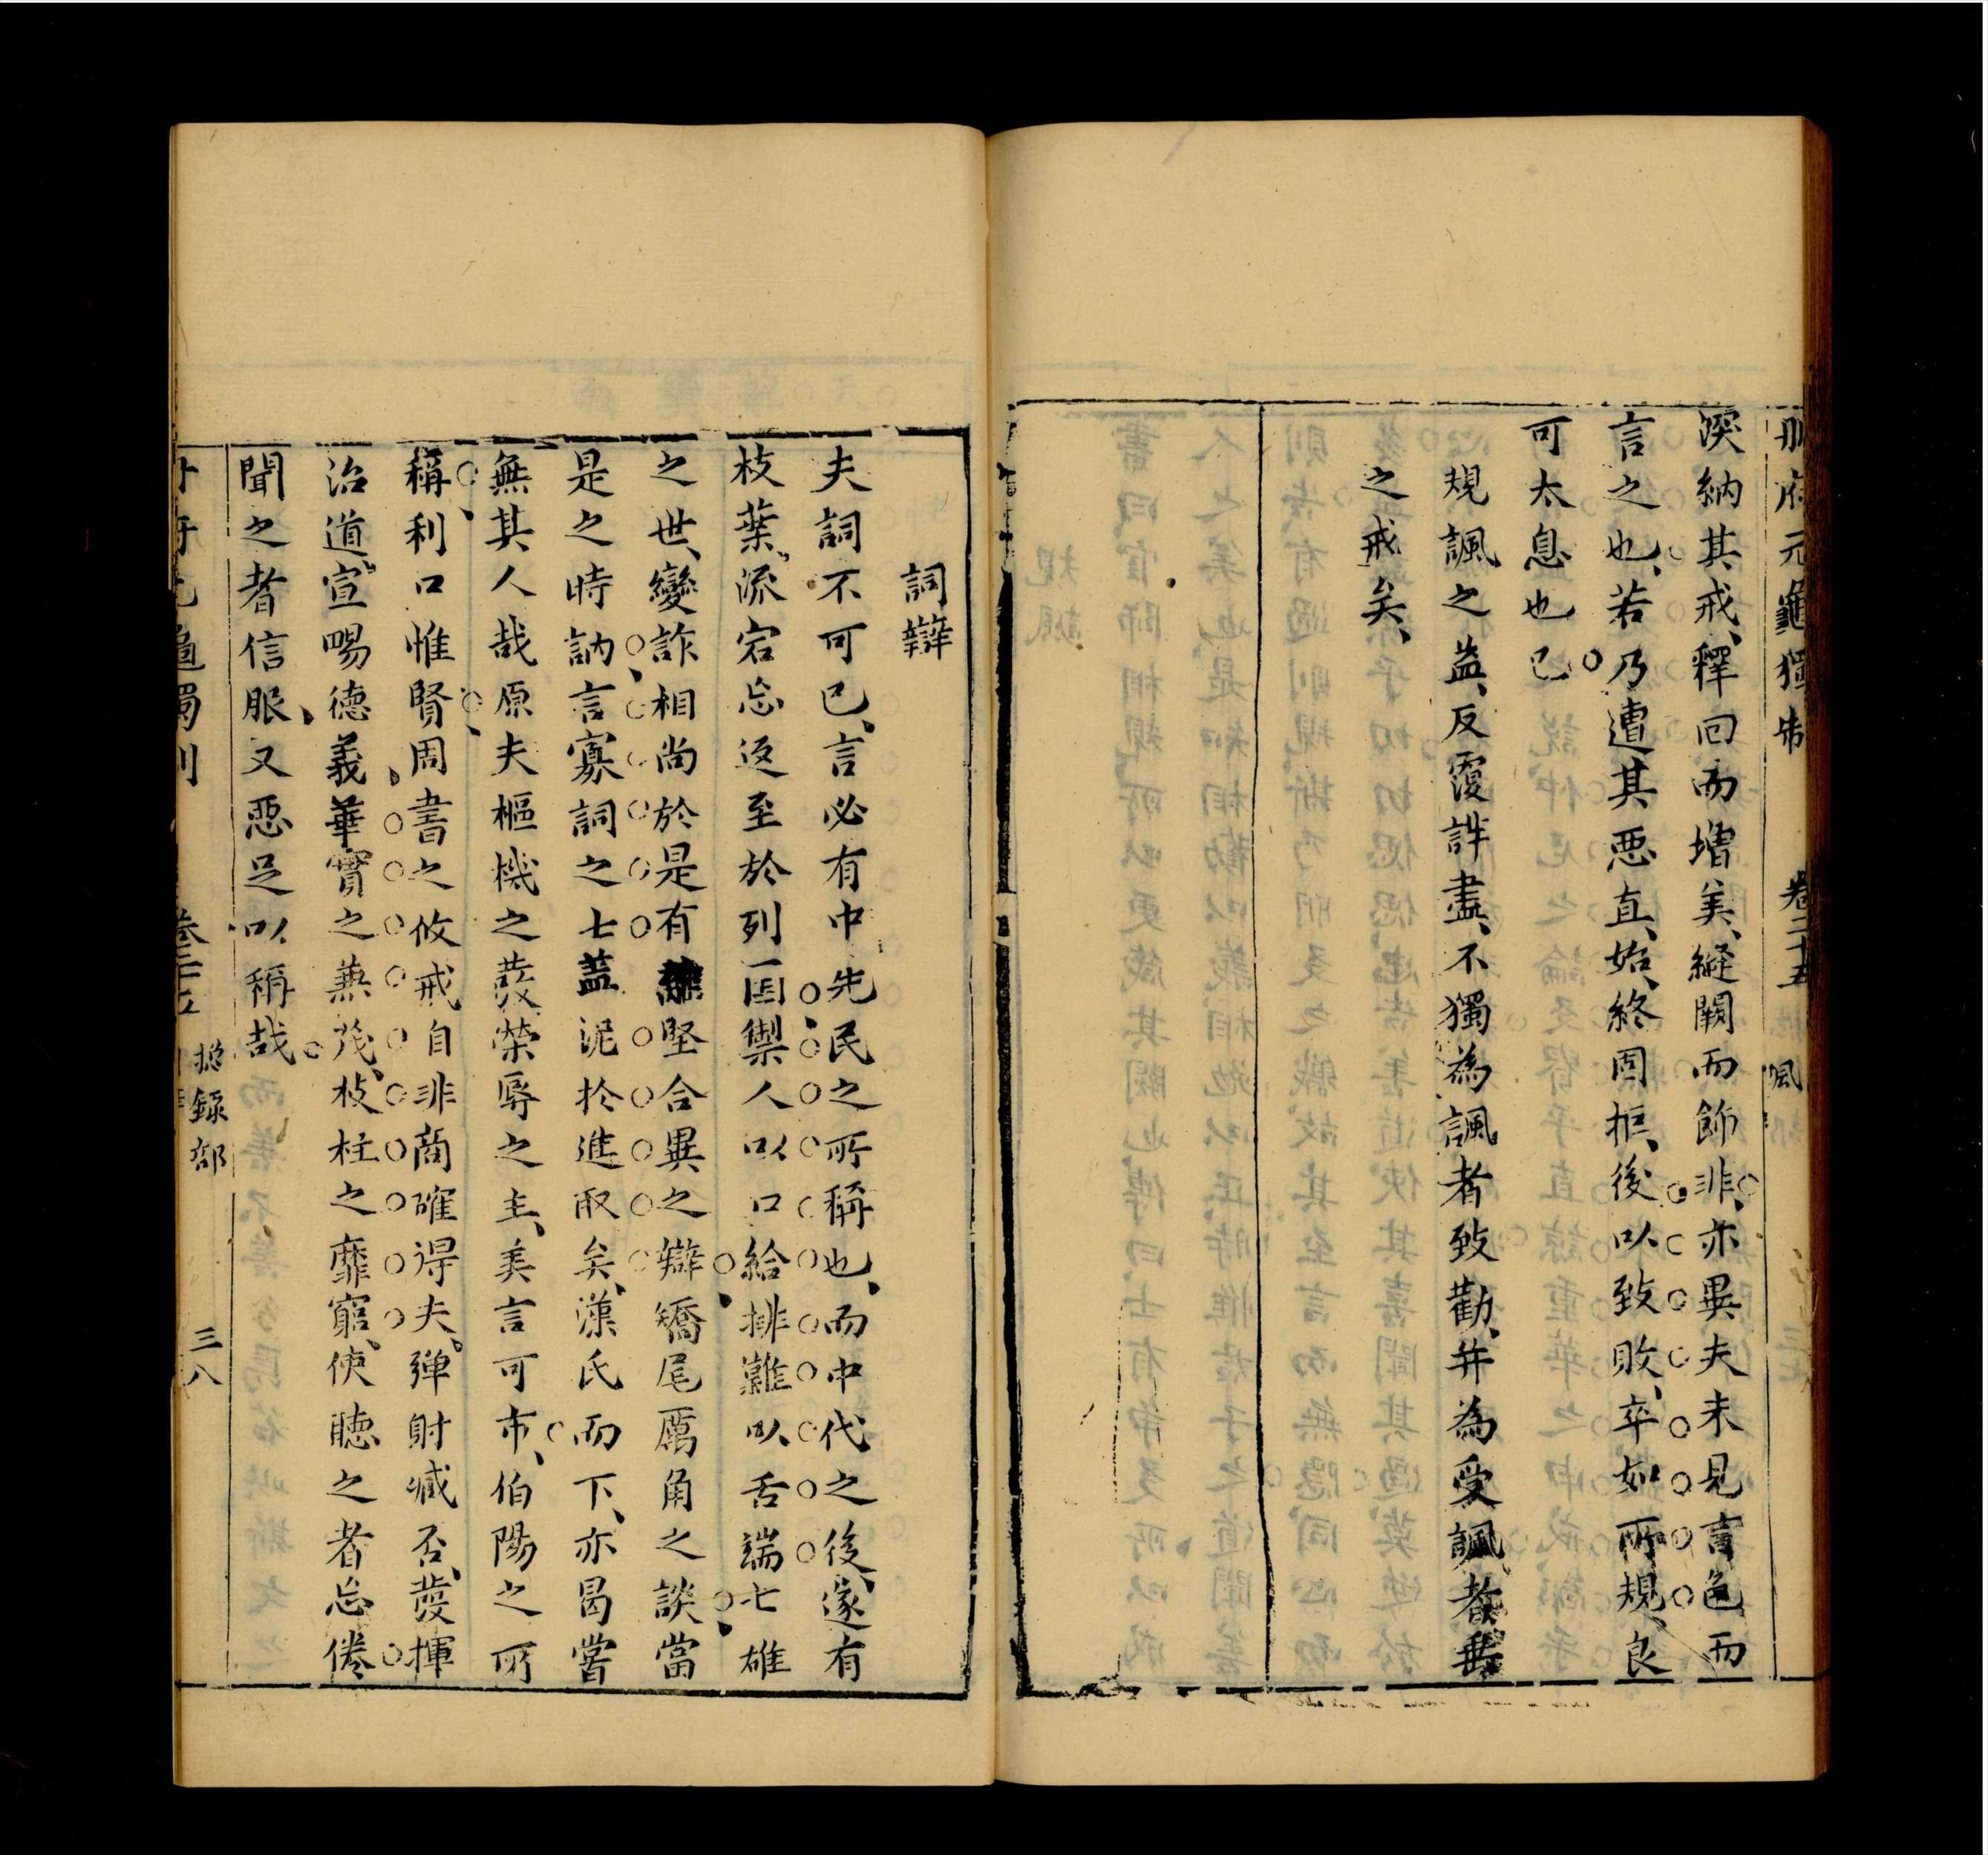 冊府元龜獨制 卷三十五 諷
深納其戒、釋回而增美、縫闕而飾非、亦異夫未見言色而
言之也、若乃遭其惡直、始終固拒、後以致敗、卒如所規、良
可太息也已
規諷之益、反覆詳盡、不獨為諷者致勸、并為受諷者垂
之戒矣、
詞辯
夫詞不可已、言必有中先民之所稱也、而中代之後、遂有
枝葉、流宕忘返至於列國禦人以口給排難以舌端七雄
之世、變詐相尚於是有離堅合異之辯矯尾厲角之談當
是之時訥言寡詞之士蓋泥於進取矣、漢氏而下、亦曷嘗
無其人哉原夫樞機之發榮辱之主、美言可市、伯陽之所
稱利口惟賢周書之攸戒自非商確得失、彈射臧否、發揮
治道、宣暢德義華實之兼茂、枝柱之靡窮、使聽之者忘倦
聞之者信服、又惡足以稱哉
冊府元龜獨制 卷三十五 總錄部 三八